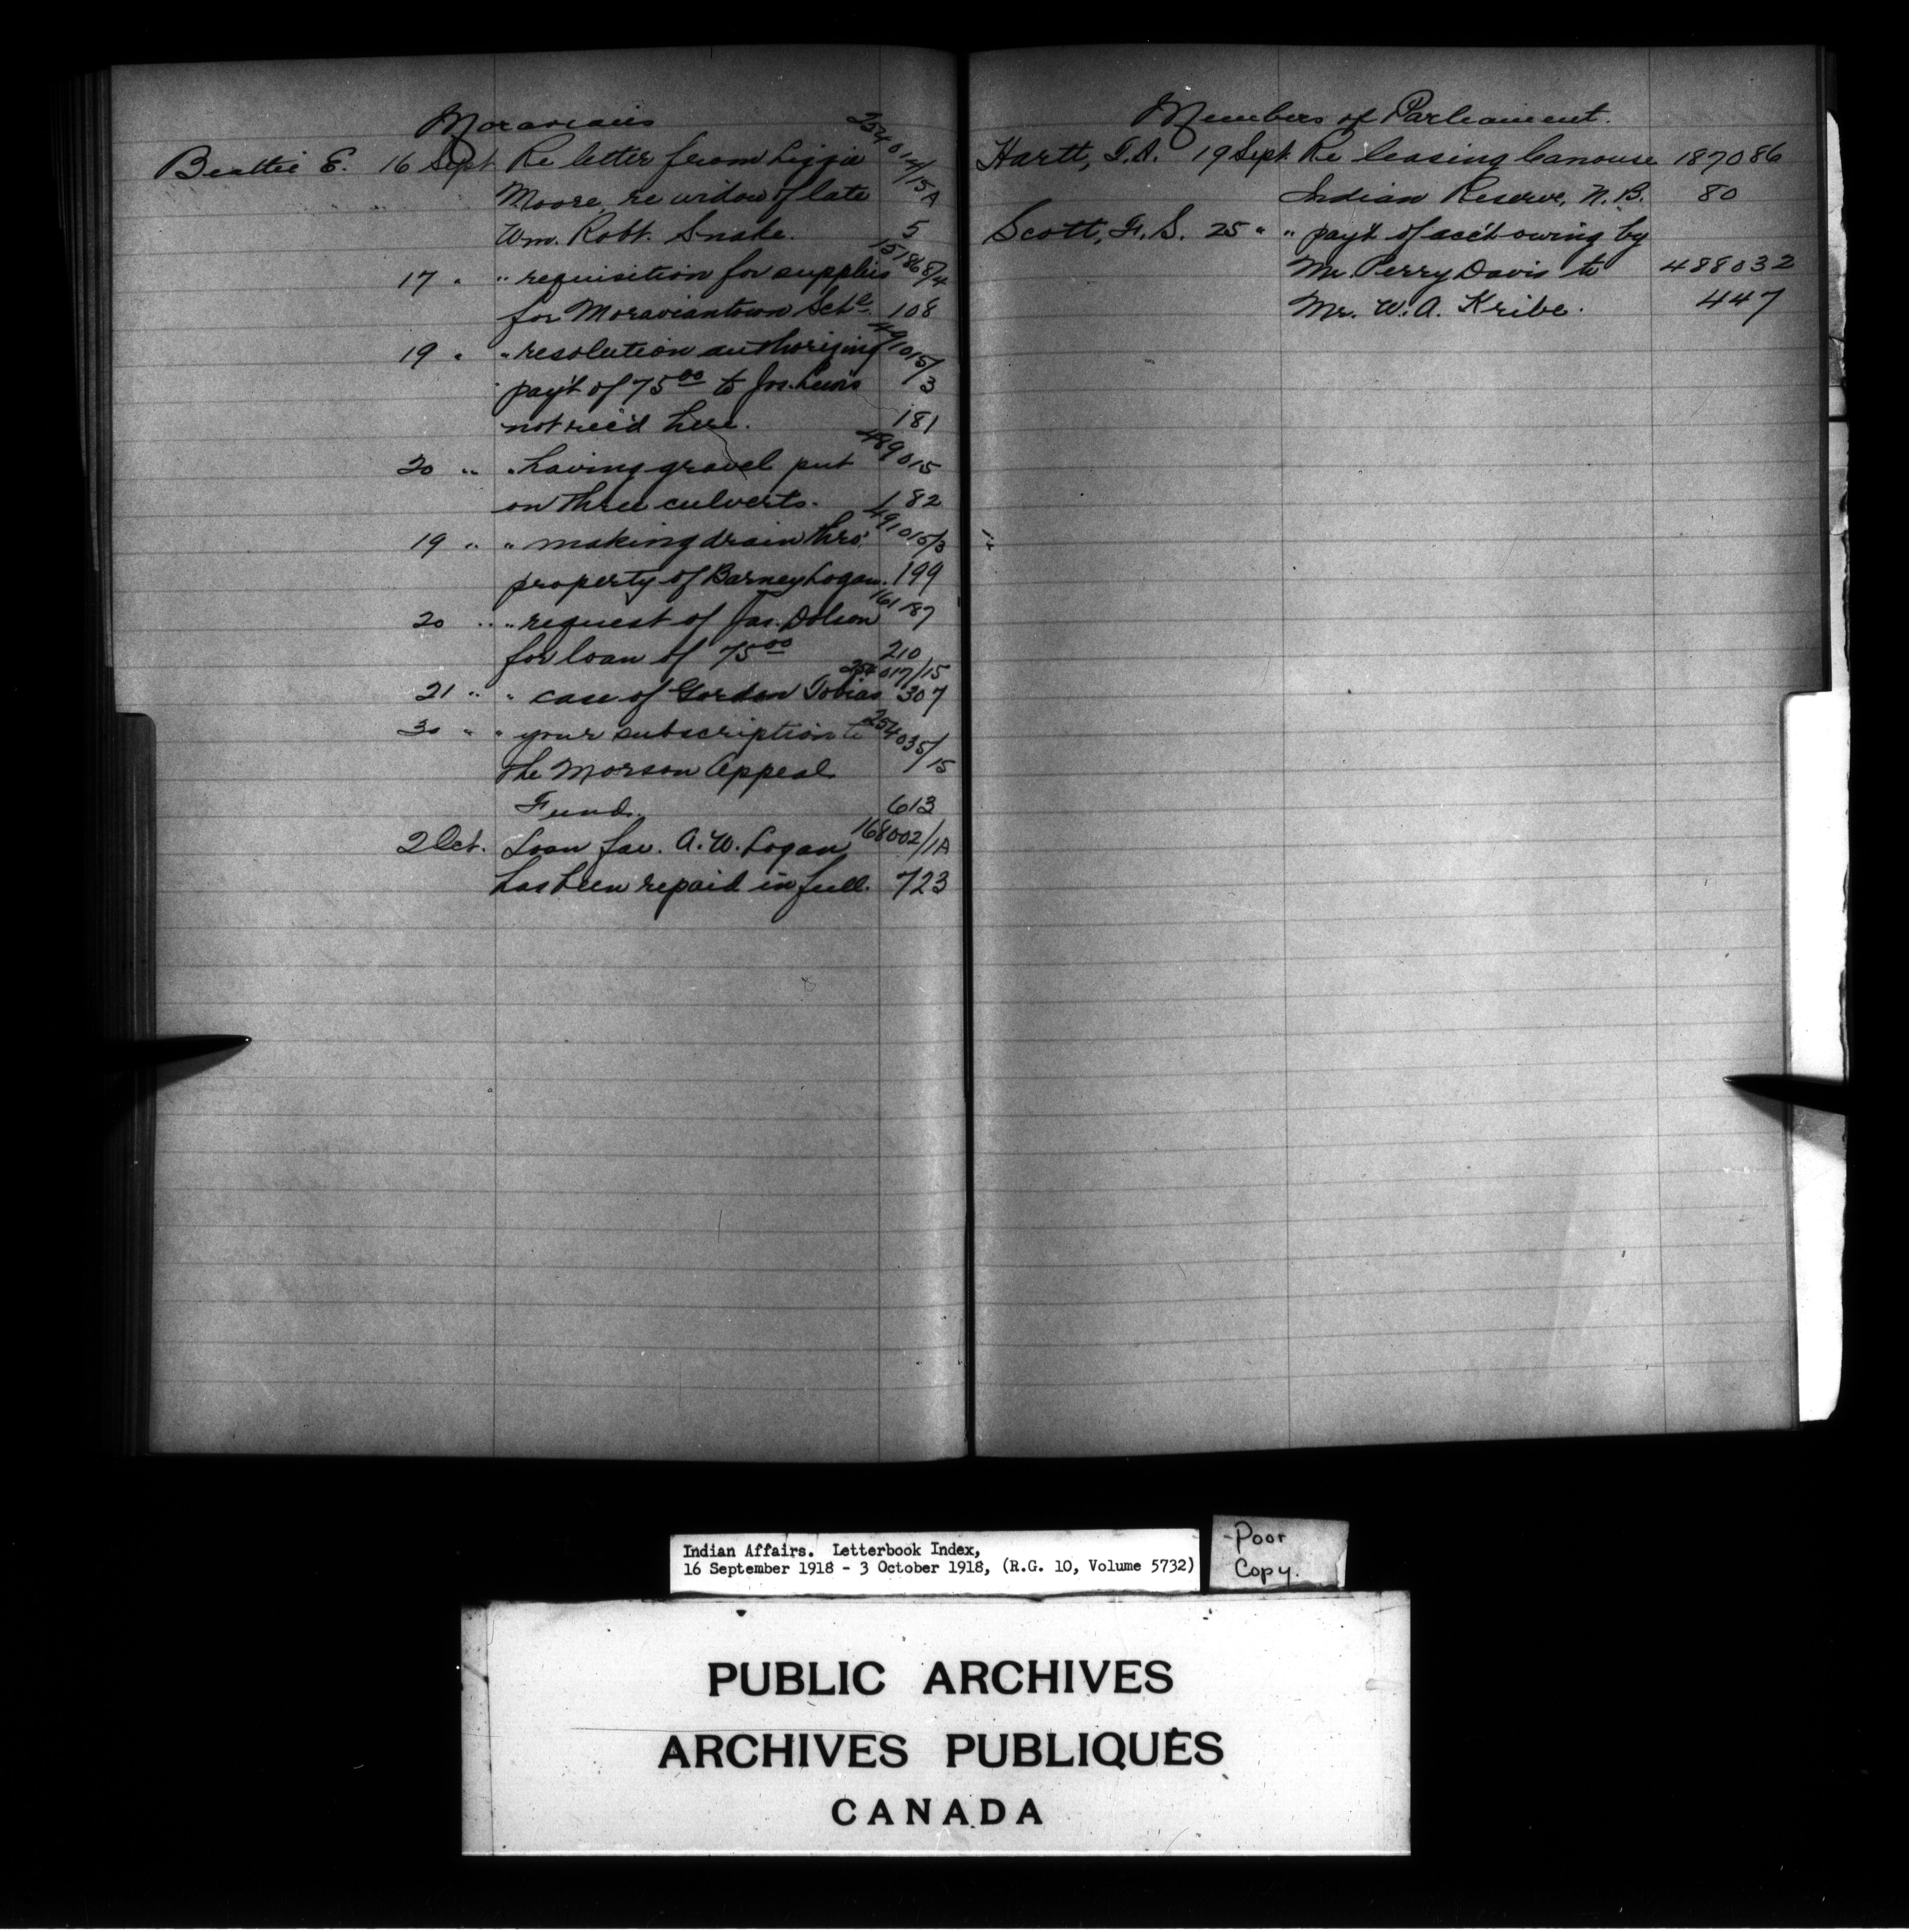 Moravians
Beattie E. 16 Sept Re letter from Lizzie 254014/15A
Moore, re widow of late
Wm. Robt. Snake. 5
17 " " requisition for supplies 15186 8/4
for Moraviantown Schl. 108
19 " " resolution authorizing 491015/3
pay't of 75 00 to Jos. Lewis
not rec'd here. 181
20 " " having gravel put 489015
on three culverts. 182
19 " " making drain thro' 491015/3
property of Barney Logan. 199
20 " " request of Jas. Dolson 161187
for loan of 75 00 210
21 " " case of Gordon Tobias 254017/15 307
30 " " your subscription to 254035/15
the Morson Appeal
Fund. 613
2 Oct. Loan fav. A. W. Logan 168002/1A
has been repaid in full. 723
Members of Parliament.
Hartt, T.A. 19 Sept. Re leasing Canouse 187086
Indian Reserve, N.B. 80
Scott, F. S. 25 " " pay't of acc't owing by
Mr. Perry Davis to 488032
Mr. W. A. Kribe. 447
Indian Affairs. Letterbook Index,
16 September 1918 - 3 October 1918, (R.G. 10, Volume 5732)
-Poor
Copy.
PUBLIC ARCHIVES
ARCHIVES PUBLIQUES
CANADA